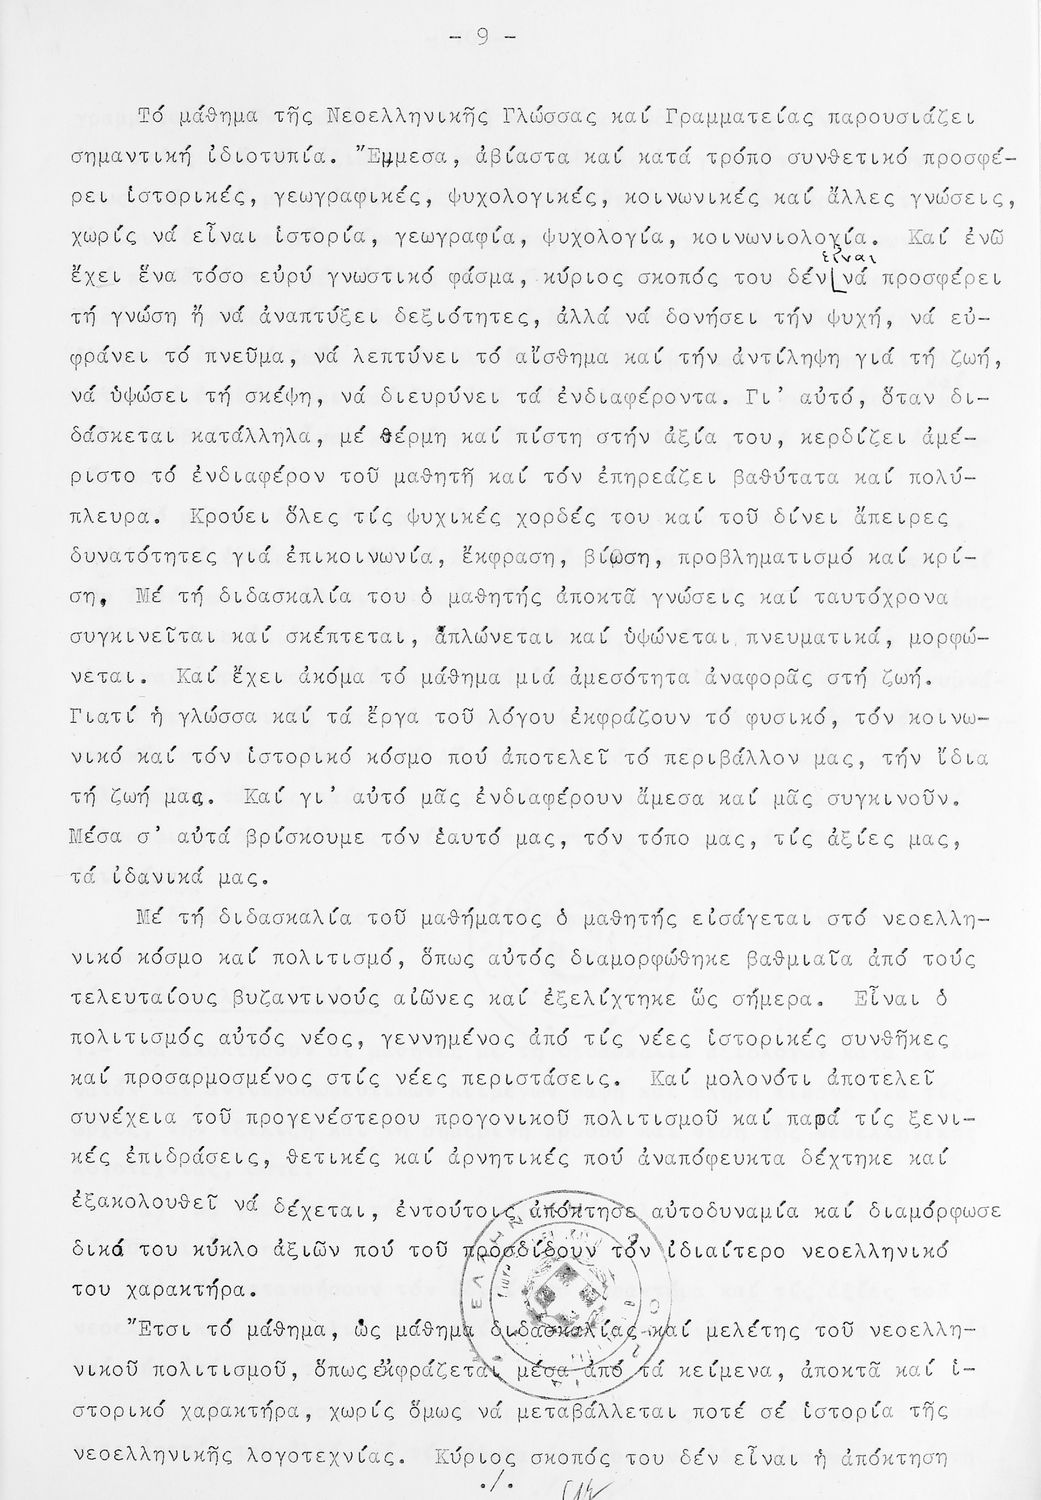 - 9 -
Τό μάθημα τῆς Νεοελληνικῆς Γλώσσας καί Γραμματείας παρουσιάζει
σημαντική ἰδιοτυπία. Ἔμμεσα, ἀβίαστα καί κατά τρόπο συνθετικό προσφέ-
ρει ἱστορικές, γεωγραφικές, ψυχολογικές, κοινωνικές καί ἄλλες γνώσεις,
χωρίς νά εἶναι ἱστορία, γεωγραφία, ψυχολογία, κοινωνιολογία. Καί ἐνῶ
εἶναι
ἔχει ἕνα τόσο εὐρύ γνωστικό φάσμα, κύριος σκοπός του δέν νά προσφέρει
τή γνώση ἤ νά ἀναπτύξει δεξιότητες, ἀλλά νά δονήσει τήν ψυχή, νά εὐ-
φράνει τό πνεῦμα, νά λεπτύνει τό αἴσθημα καί τήν ἀντίληψη γιά τή ζωή,
νά ὑψώσει τή σκέψη, νά διευρύνει τά ἐνδιαφέροντα. Γι' αὐτό, ὅταν δι-
δάσκεται κατάλληλα, μέ θέρμη καί πίστη στήν ἀξία του, κερδίζει ἀμέ-
ριστο τό ἐνδιαφέρον τοῦ μαθητῆ καί τόν ἐπηρεάζει βαθύτατα καί πολύ-
πλευρα. Κρούει ὅλες τίς ψυχικές χορδές του καί τοῦ δίνει ἄπειρες
δυνατότητες γιά ἐπικοινωνία, ἔκφραση, βίωση, προβληματισμό καί κρί-
ση. Μέ τή διδασκαλία του ὁ μαθητής ἀποκτᾶ γνώσεις καί ταυτόχρονα
συγκινεῖται καί σκέπτεται, ἁπλώνεται καί ὑψώνεται πνευματικά, μορφώ-
νεται. Καί ἔχει ἀκόμα τό μάθημα μιά ἀμεσότητα ἀναφορᾶς στή ζωή.
Γιατί ἡ γλώσσα καί τά ἔργα τοῦ λόγου ἐκφράζουν τό φυσικό, τόν κοινω-
νικό καί τόν ἱστορικό κόσμο πού ἀποτελεῖ τό περιβάλλον μας, τήν ἴδια
τή ζωή μας. Καί γι' αὐτό μᾶς ἐνδιαφέρουν ἄμεσα καί μᾶς συγκινοῦν.
Μέσα σ' αὐτά βρίσκουμε τόν ἑαυτό μας, τόν τόπο μας, τίς ἀξίες μας,
τά ἰδανικά μας.
Μέ τή διδασκαλία τοῦ μαθήματος ὁ μαθητής εἰσάγεται στό νεοελλη-
νικό κόσμο καί πολιτισμό, ὅπως αὐτός διαμορφώθηκε βαθμιαῖα ἀπό τούς
τελευταίους βυζαντινούς αἰῶνες καί ἐξελίχτηκε ὥς σήμερα. Εἶναι ὁ
πολιτισμός αὐτός νέος, γεννημένος ἀπό τίς νέες ἱστορικές συνθῆκες
καί προσαρμοσμένος στίς νέες περιστάσεις. Καί μολονότι ἀποτελεῖ
συνέχεια τοῦ προγενέστερου προγονικοῦ πολιτισμοῦ καί παρά τίς ξενι-
κές ἐπιδράσεις, θετικές καί ἀρνητικές πού ἀναπόφευκτα δέχτηκε καί
ἐξακολουθεῖ νά δέχεται, ἐντούτοις ἀπόκτησε αὐτοδυναμία καί διαμόρφωσε
δικό του κύκλο ἀξιῶν πού τοῦ προσδίδουν τόν ἰδιαίτερο νεοελληνικό
του χαρακτήρα.
Ἔτσι τό μάθημα, ὡς μάθημα διδασκαλίας καί μελέτης τοῦ νεοελλη-
νικοῦ πολιτισμοῦ, ὅπως ἐκφράζεται μέσα ἀπό τά κείμενα, ἀποκτᾶ καί ἱ-
στορικό χαρακτήρα, χωρίς ὅμως νά μεταβάλλεται ποτέ σέ ἱστορία τῆς
νεοελληνικῆς λογοτεχνίας. Κύριος σκοπός του δέν εἶναι ἡ ἀπόκτηση
./.